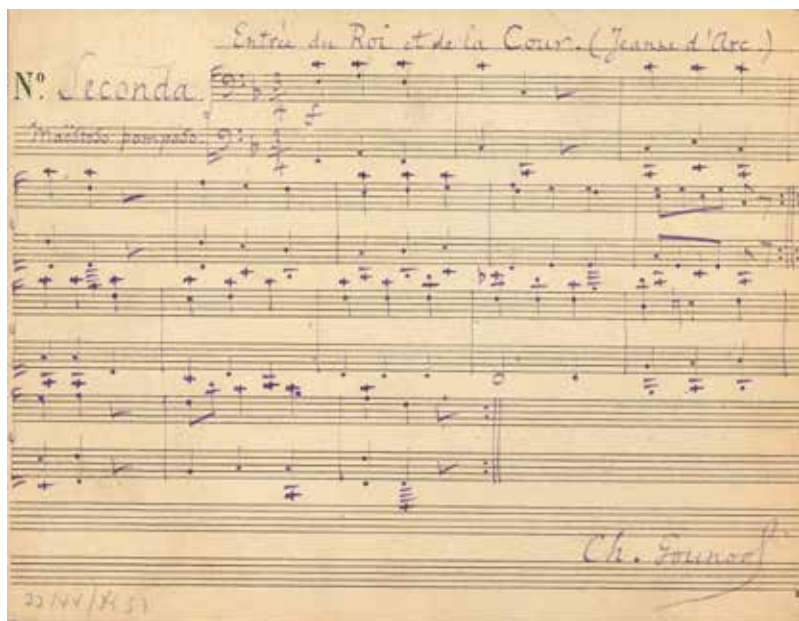 Entrée du Roi et de la Cour. (Jeanne d'Arc.)
Nº Seconda
Maëstoso pomposo.
Ch. Gounod